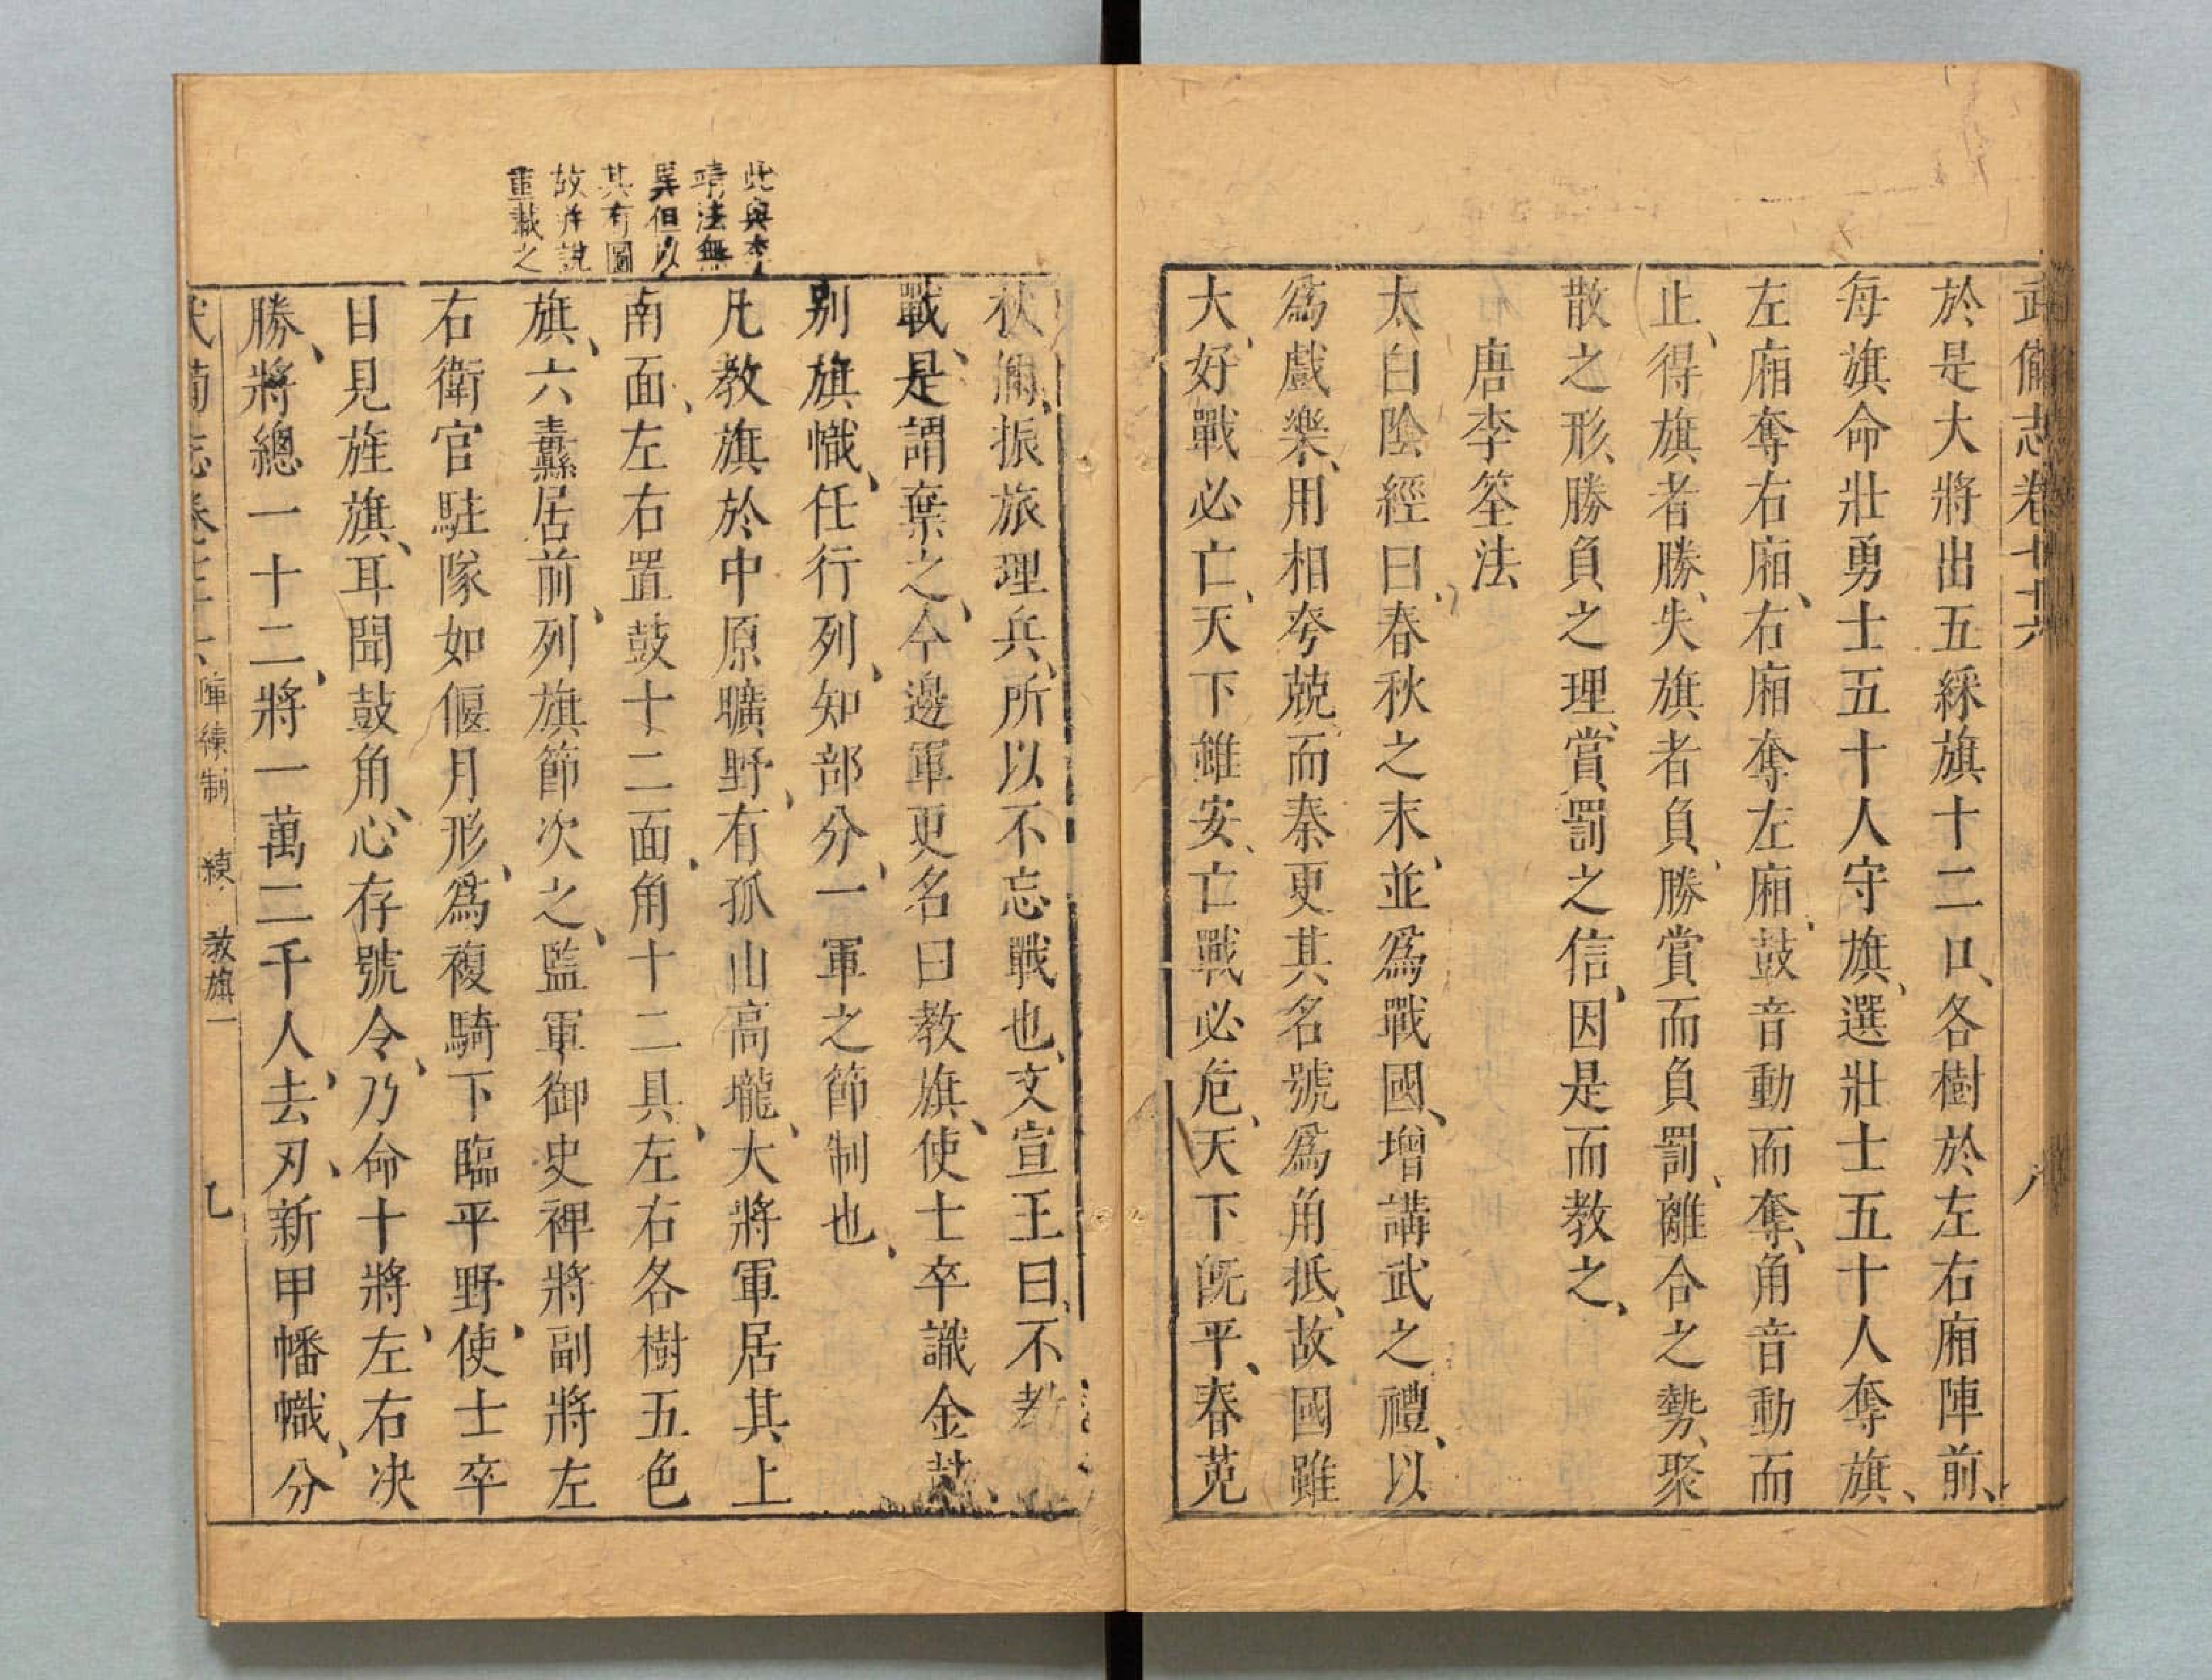 武備志卷七十六 八
於是大將出五綵旗十二口、各樹於左右廂陣前、
每旗命壯勇士五十人守旗、選壯士五十人奪旗、
左廂奪右廂、右廂奪左廂、鼓音動而奪、角音動而
止、得旗者勝、失旗者負、勝賞而負罰、離合之勢、聚
散之形、勝負之理、賞罰之信、因是而教之、
唐李筌法
太白陰經曰、春秋之末、並爲戰國、增講武之禮、以
爲戲樂、用相夸兢、而秦更其名號爲角抵、故國雖
大、好戰必亡、天下雖安、亡戰必危、天下旣平、春蒐
秋獮、振旅理兵、所以不忘戰也、文宣王曰、不教
戰、是謂棄之、今邊軍更名曰教旗、使士卒識金
別旗幟、任行列、知部分、一軍之節制也、
凡教旗於中原曠野、有孤山高壠、大將軍居其上
南面、左右置鼓十二面、角十二具、左右各樹五色
旗、六纛居前、列旗節次之、監軍御史裨將副將左
右衛官駐隊如偃月形、爲複騎下臨平野、使士卒
目見旌旗、耳聞鼓角、心存號令、乃命十將、左右决
勝、將總一十二將一萬二千人、去刃、新甲幡幟、分
此與李
靖法無
異但以
其有圖
故并說
重載之
陣練制 練 教旗一